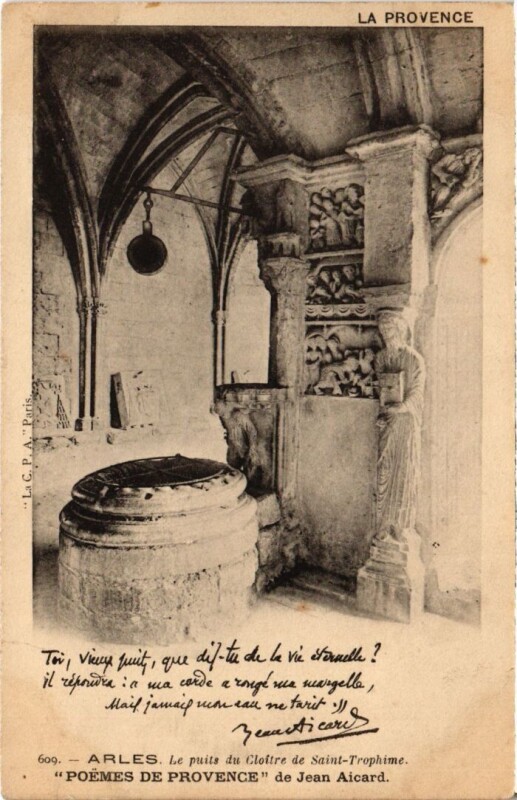 LA PROVENCE
"La C. P. A." Paris.
Toi, vieux puits, que dis-tu de la vie éternelle ?
il répondra : « ma corde a rongé ma margelle,
Mais jamais mon eau ne tarit. »
Jean Aicard
609. — ARLES. Le puits du Cloître de Saint-Trophime.
"POËMES DE PROVENCE" de Jean Aicard.